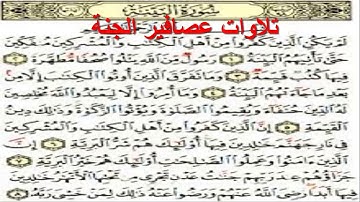 سُورَةُ البَيِّنَةِ
تلاوات عصافير الجنة
لَمْ يَكُنِ الَّذِينَ كَفَرُوا مِنْ أَهْلِ الْكِتَٰبِ وَالْمُشْرِكِينَ مُنفَكِّينَ
حَتَّىٰ تَأْتِيَهُمُ الْبَيِّنَةُ ١ رَسُولٌ مِّنَ اللَّهِ يَتْلُوا صُحُفًا مُّطَهَّرَةً ٢
فِيهَا كُتُبٌ قَيِّمَةٌ ٣ وَمَا تَفَرَّقَ الَّذِينَ أُوتُوا الْكِتَٰبَ إِلَّا مِنْ
بَعْدِ مَا جَاءَتْهُمُ الْبَيِّنَةُ ٤ وَمَا أُمِرُوا إِلَّا لِيَعْبُدُوا اللَّهَ مُخْلِصِينَ
لَهُ الدِّينَ حُنَفَاءَ وَيُقِيمُوا الصَّلَوٰةَ وَيُؤْتُوا الزَّكَوٰةَ وَذَٰلِكَ دِينُ
الْقَيِّمَةِ ٥ إِنَّ الَّذِينَ كَفَرُوا مِنْ أَهْلِ الْكِتَٰبِ وَالْمُشْرِكِينَ
فِي نَارِ جَهَنَّمَ خَٰلِدِينَ فِيهَا أُولَٰئِكَ هُمْ شَرُّ الْبَرِيَّةِ ٦ إِنَّ
الَّذِينَ ءَامَنُوا وَعَمِلُوا الصَّٰلِحَٰتِ أُولَٰئِكَ هُمْ خَيْرُ الْبَرِيَّةِ ٧
جَزَاؤُهُمْ عِندَ رَبِّهِمْ جَنَّٰتُ عَدْنٍ تَجْرِي مِن تَحْتِهَا الْأَنْهَٰرُ خَٰلِدِينَ
فِيهَا أَبَدًا رَّضِيَ اللَّهُ عَنْهُمْ وَرَضُوا عَنْهُ ذَٰلِكَ لِمَنْ خَشِيَ رَبَّهُ ٨